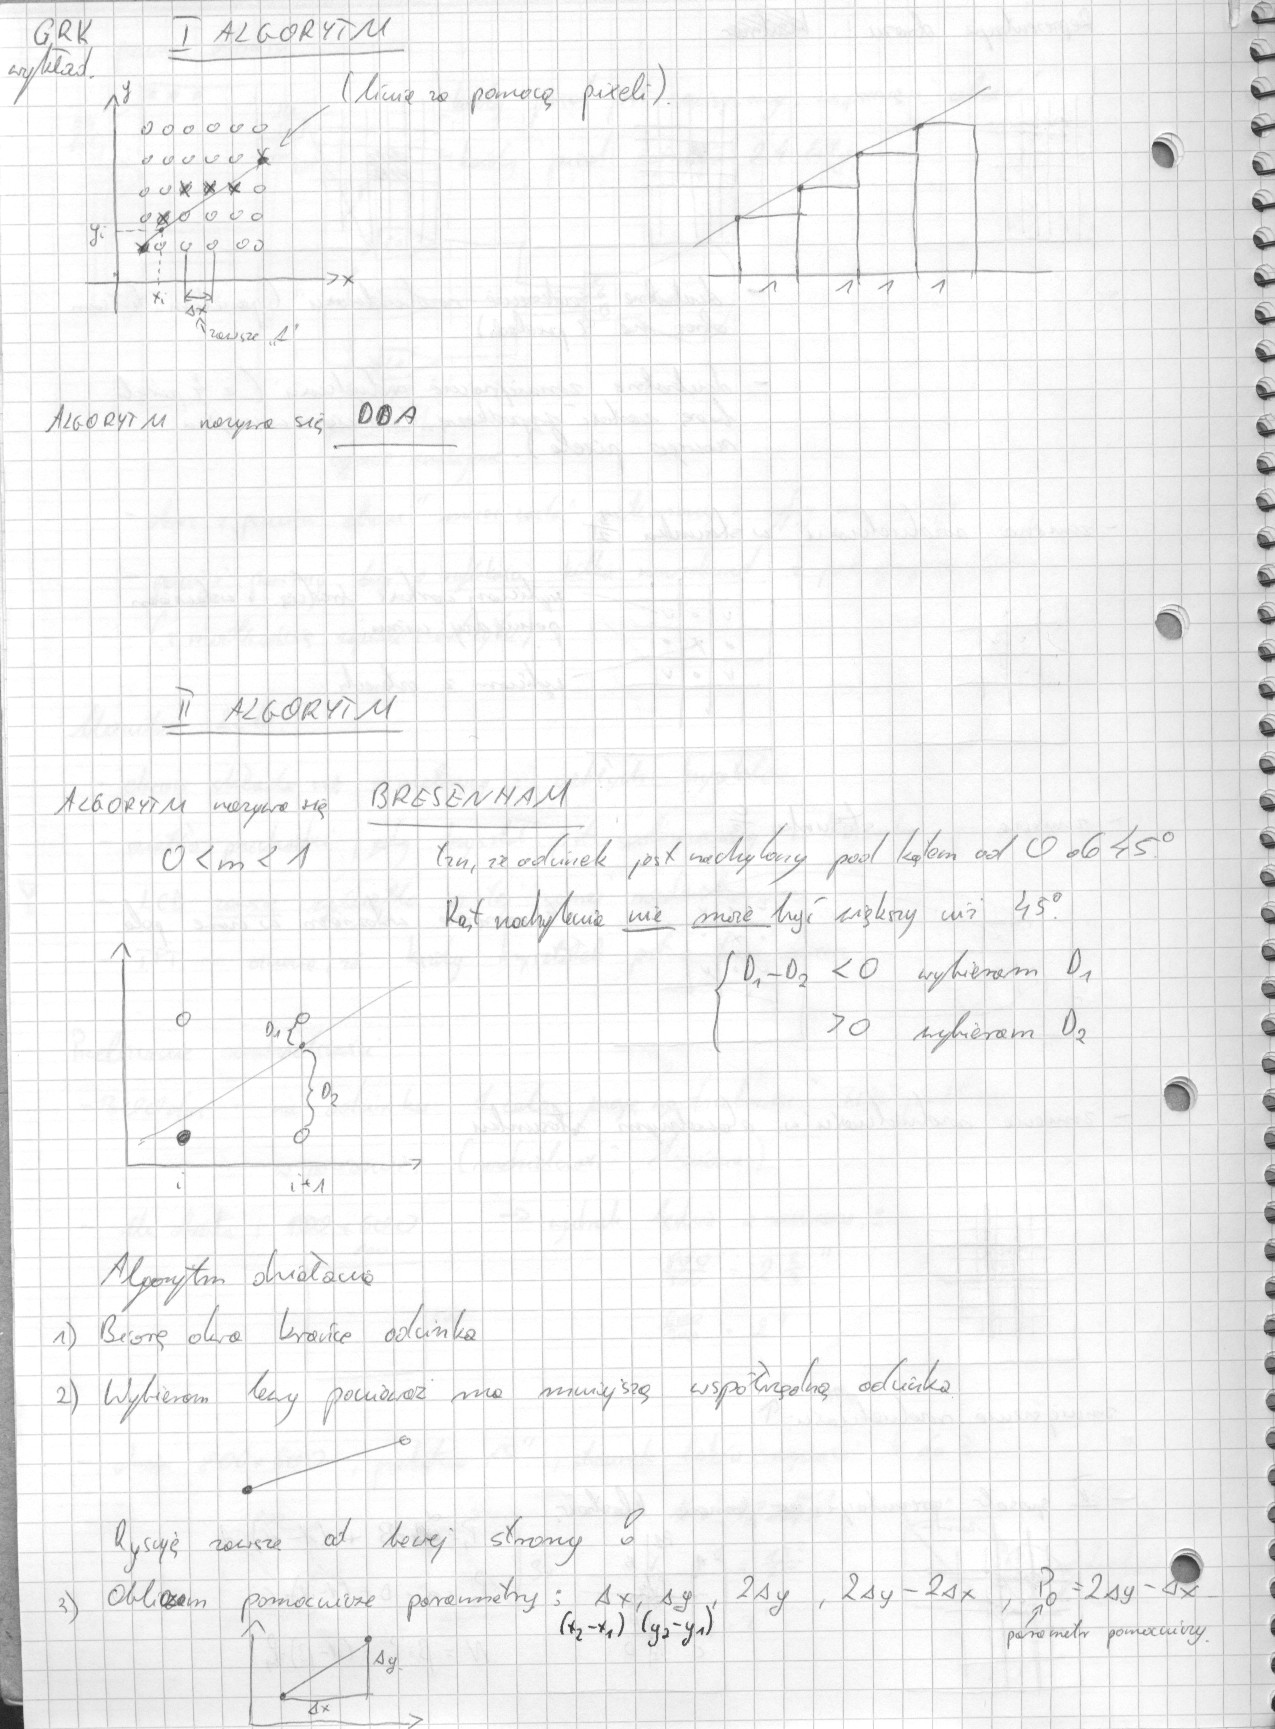 GRK
wykład.
I ALGORYTM
(linie za pomocą pixeli).
y
yi
xi
x
Δx
zawsze „1"
1 1 1 1
ALGORYTM nazywa się DDA
II ALGORYTM
ALGORYTM nazywa się BRESENHAM
0 < m < 1 tzn, że odcinek jest nachylony pod kątem od 0 do 45°.
Kąt nachylenia nie może być większy niż 45°.
D1-D2 < 0 wybieram D1
> 0 wybieram D2
D1
D2
i i+1
Algorytm działania
1) Biorę dwa krańce odcinka
2) Wybieram lewy ponieważ ma mniejszą współrzędną odcinka.
Rysuję zawsze od lewej strony !
3) Obliczam pomocnicze parametry: Δx, Δy, 2Δy, 2Δy-2Δx, P0=2Δy-Δx
(x2-x1) (y2-y1)
parametr pomocniczy.
Δy
Δx